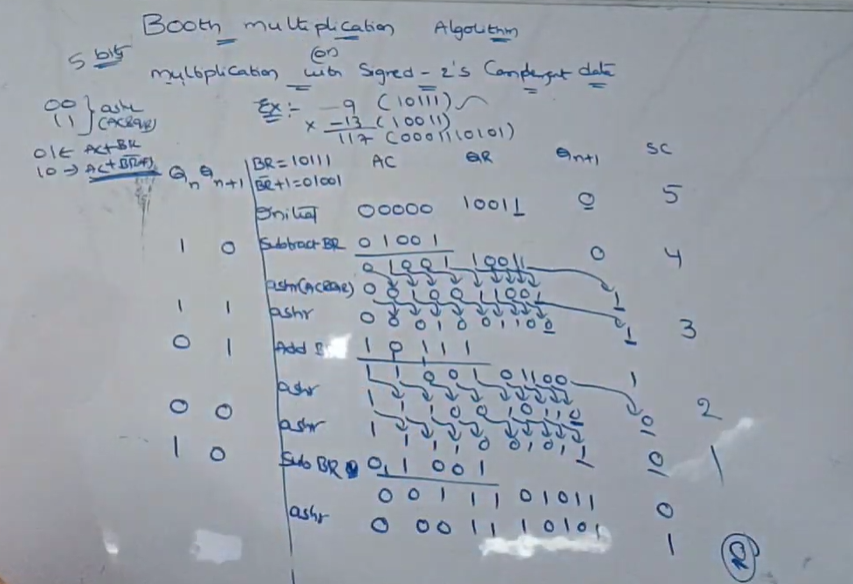 Booth multiplication Algorithm
5 bits (or)
multiplication with Signed - 2's Complement data
00 } ashr
11 } (ACQR)
Ex:- -9 (10111)
× -13 (10011)
117 (0001110101)
01 ← AC+BR
10 → AC+BR+1
Qn Qn+1 BR=10111 AC QR Qn+1 SC
BR+1=01001
Initial 00000 10011 0 5
1 0 Subtract BR 01001 0 4
0 1001 10011
ashr(ACQR) 0 0100 11001 1
1 1 ashr 0 0010 01100 1 3
0 1 Add 10111
11001 01100 1
ashr 11100 10110 0 2
0 0 ashr 11110 01011 0 1
1 0 Sub BR 01001
00111 01011 0
ashr 00011 10101 1